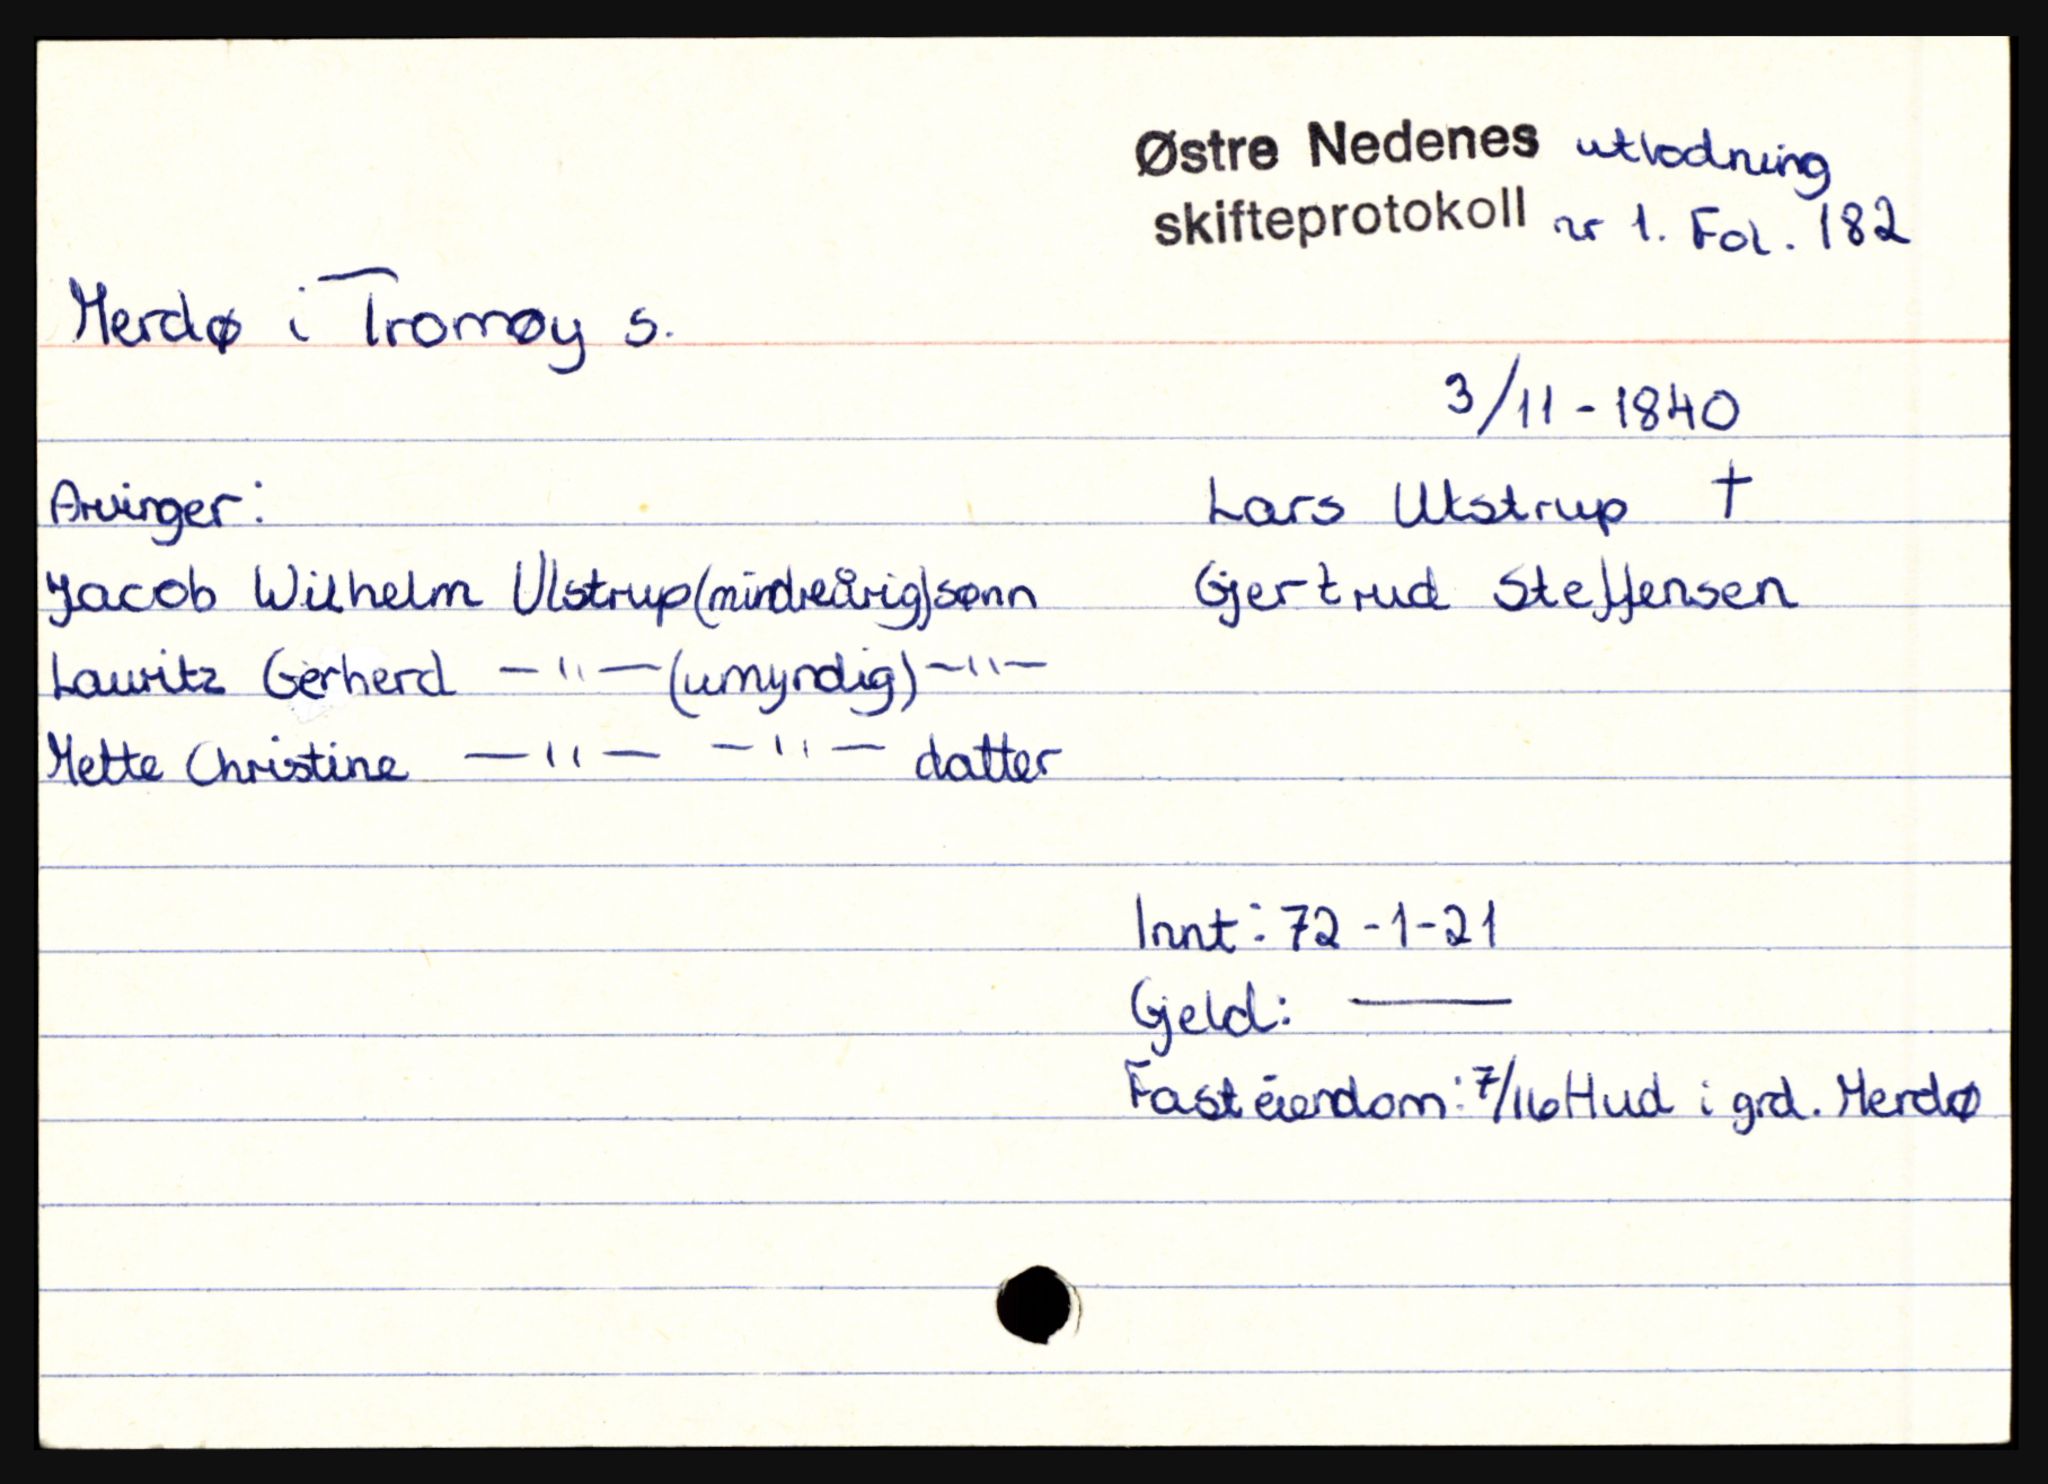 Østre Nedenes utlodning
skifteprotokoll nr 1. Fol. 182
Merdø i Tromøy s.
3/11 - 1840
Arvinger: Lars Ulstrup †
Jacob Wilhelm Ulstrup (mindreårig) sønn Gjertrud Steffensen
Lauritz Gerherd —"— (umyndig) —"—
Mette Christine —"— —"— datter
Innt: 72 - 1 - 21
Gjeld: ——
Fast eiendom: 7/16 Hud i grd. Merdø